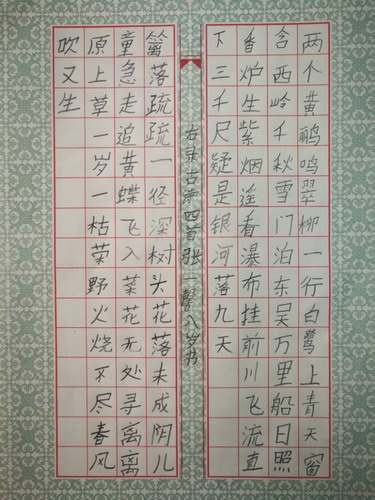 两个黄鹂鸣翠柳一行白鹭上青天窗
含西岭千秋雪门泊东吴万里船日照
香炉生紫烟遥看瀑布挂前川飞流直
下三千尺疑是银河落九天
右录古诗四首张一馨八岁书
篱落疏疏一径深树头花落未成阴儿
童急走追黄蝶飞入菜花无处寻离离
原上草一岁一枯荣野火烧不尽春风
吹又生